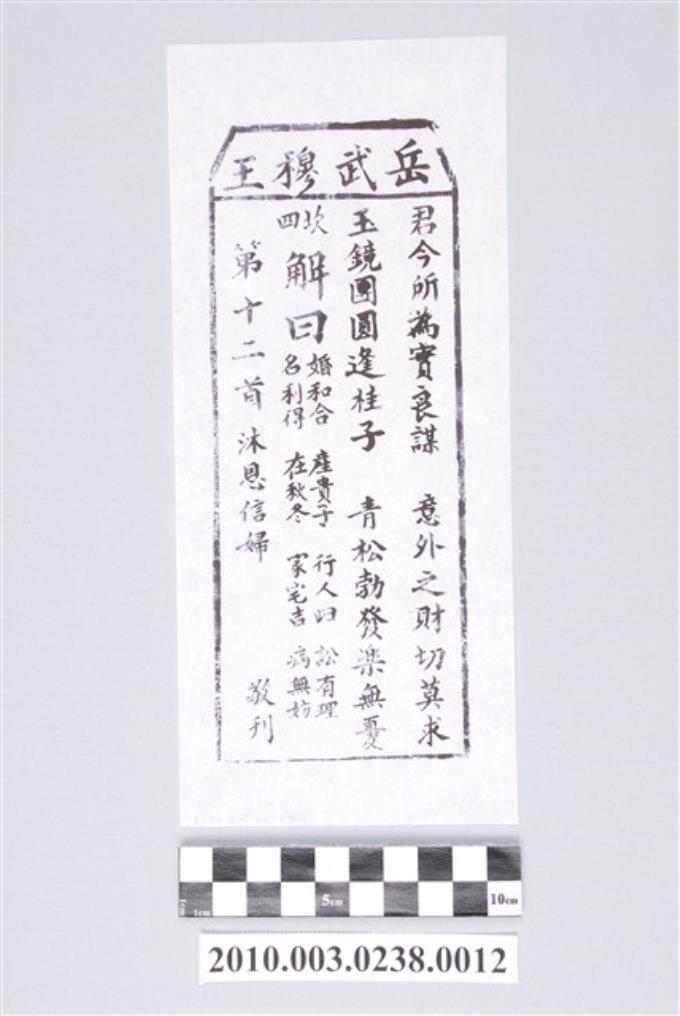 岳武穆王
君今所為實良謀　意外之財切莫求
玉鏡團圓逢桂子　青松勃發樂無憂
坎四
解曰
婚和合　產貴子　行人归　訟有理
名利得　在秋冬　家宅吉　病無妨
第十二首　沐恩信婦　敬刊
1cm 5cm 10cm
2010.003.0238.0012